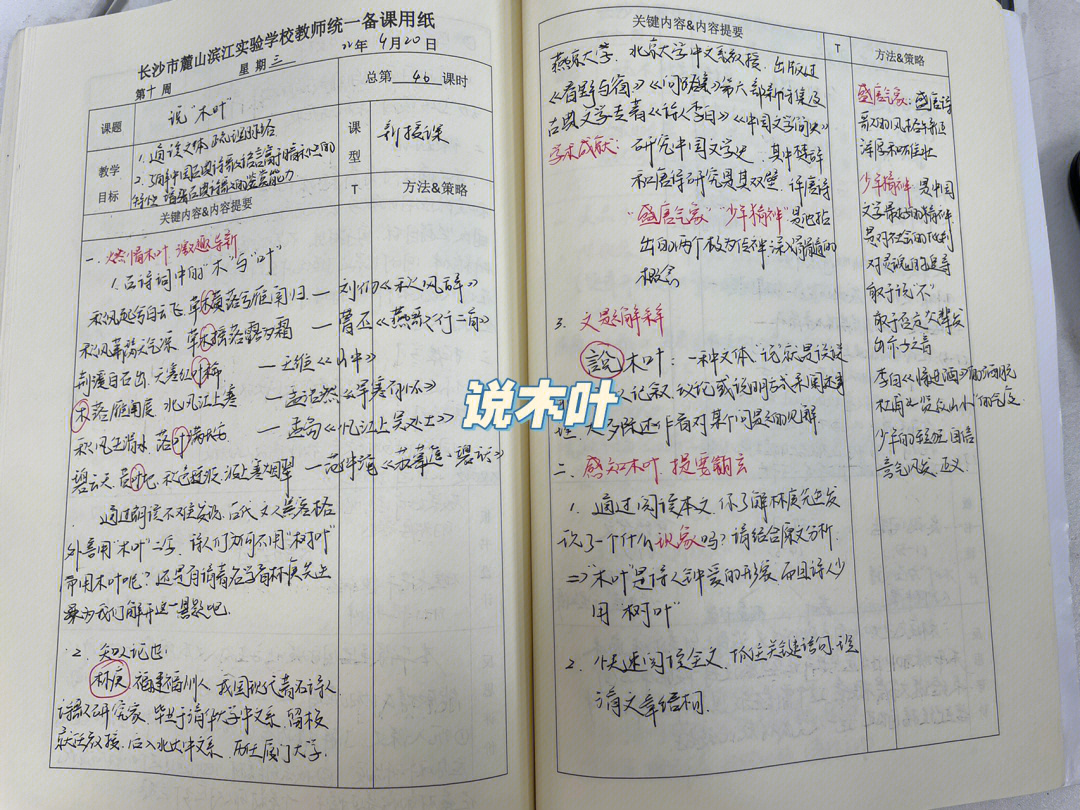 长沙市麓山滨江实验学校教师统一备课用纸
第十周 星期三 22年4月20日
课题 说"木叶" 总第46课时
教学目标
1.通读文体 疏理脉络
课型 新授课
2.了解中国古典诗歌语言富于暗示性的
特性 古典诗歌的鉴赏能力
关键内容&内容提要 T 方法&策略
一.燃情木叶 激趣导新
1.古诗词中的"木"与"叶"
秋风起兮白云飞,草木黄落兮雁南归.—刘彻《秋风辞》
秋风萧瑟天气凉 草木摇落露为霜 —曹丕《燕歌行二首》
荆溪白石出,天寒红叶稀 —王维《山中》
木落雁南度 北风江上寒 —孟浩然《早寒有怀》
秋风生渭水,落叶满长安 —《忆江上吴处士》
碧云天,黄叶地,秋色连波,波上寒烟翠 —范仲淹《苏幕遮·碧云天》
通过朗读不难发现,古代文人墨客格
外喜用"木叶"二字,诗人们为何不用"树叶
而用木叶呢?还是自请著名学者林庚先生
来为我们解开这一谜题吧.
2.知人论世
林庚 福建福州人 我国现代著名诗人
诗歌研究家,毕业于清华大学中文系,留校
教授,后入北大中文系,历任厦门大学.
关键内容&内容提要 T 方法&策略
燕京大学.北京大学中文系教授.出版过
《春野与窗》《问路集》等六部新诗集及
古典文学专著《诗人李白》《中国文学简史》
学术成就:研究中国文学史,其中楚辞
和唐诗研究是其双璧.评唐诗
"盛唐气象""少年精神"是他指
出的两个极为传神,深入骨髓的
概念
3.文题解释
說木叶:一种文体"说"就是说说
以记叙 议论或说明方式来阐述事
理.大多陈述作者对某个问题的见解.
二.感知木叶,提要钩玄
1.通过阅读本文,你了解林庚先生发
现了一个什么现象吗?请结合原文分析.
⇒"木叶"是诗人钟爱的形象,而且诗人少
用"树叶"
2.快速阅读全文,抓住关键语句,说
清文章结构.
盛唐气象:盛唐诗
歌的风格特征
浑厚和雄壮
少年精神 是中国
文学最好的精神.
是对社会的批判
对灵魂的追寻
敢于说"不"
敢于否定父辈发
出
李白《将进酒》
少年的轻狂 自信
意气风发 正义
说木叶